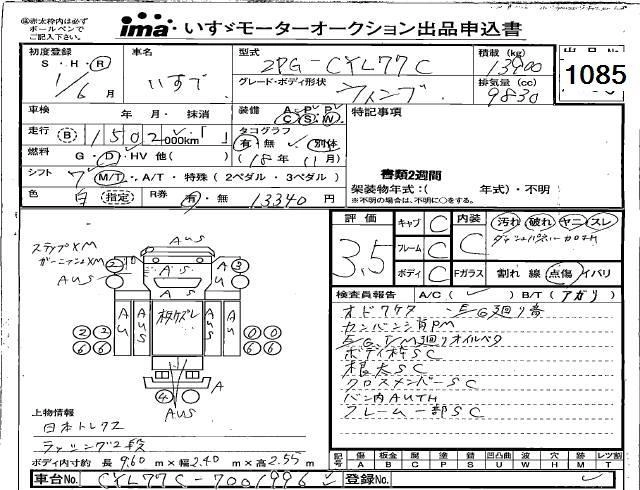 ㊟赤太枠内は必ず
ボールペンで
ご記入下さい。
ima いすゞモーターオークション出品申込書
初度登録
S・H・R
1/6月
車名
いすゞ
型式
2PG-CYL77C
グレード・ボディ形状
ウィング
積載 (kg)
13900
排気量 (cc)
9830
出品No.
1085
車検 年 月・抹消
走行 B 1502,000km「 」
燃料 G・D・HV 他( )
シフト 7 M/T・A/T・特殊(2ペダル・3ペダル)
色 白 指定 R券 有・無 13340円
装備 A/C P/S P/W
タコグラフ
有・無 別体
(18年11月)
特記事項
書類2週間
架装物年式:( 年式)・不明
※不明の場合は、不明に○をする。
ステップXM
ガーニッシュXM
AUS
AUS
AUS
AS
2
3
AU
AUS
板ケズレ
AUS
AU
2 2
6 6
0 0
6 6
4
A
AUS
評価
3.5
キャブ C
フレーム C
ボディ C
内装
C
汚れ・破れ・ヤニ・スレ
Fガラス 割れ 線 点傷 イバリ
検査員報告 A/C( ✓ ) B/T(アガリ)
E/G廻り音
カンバン шPM
E/G,T/M廻りオイルベタ
ボディ枠SC
根太SC
クロスメンバーSC
バン内AUTH
フレーム一部SC
上物情報
日本トレクス
ラッシング2段
ボディ内寸約 長9.60m×幅2.40m×高2.55m
記号 傷A 板金B 開C 塗P 錆S 凹凸曲U 波W 穴H 跡M レツ割T
車台No. CYL77C-7001996 登録No.